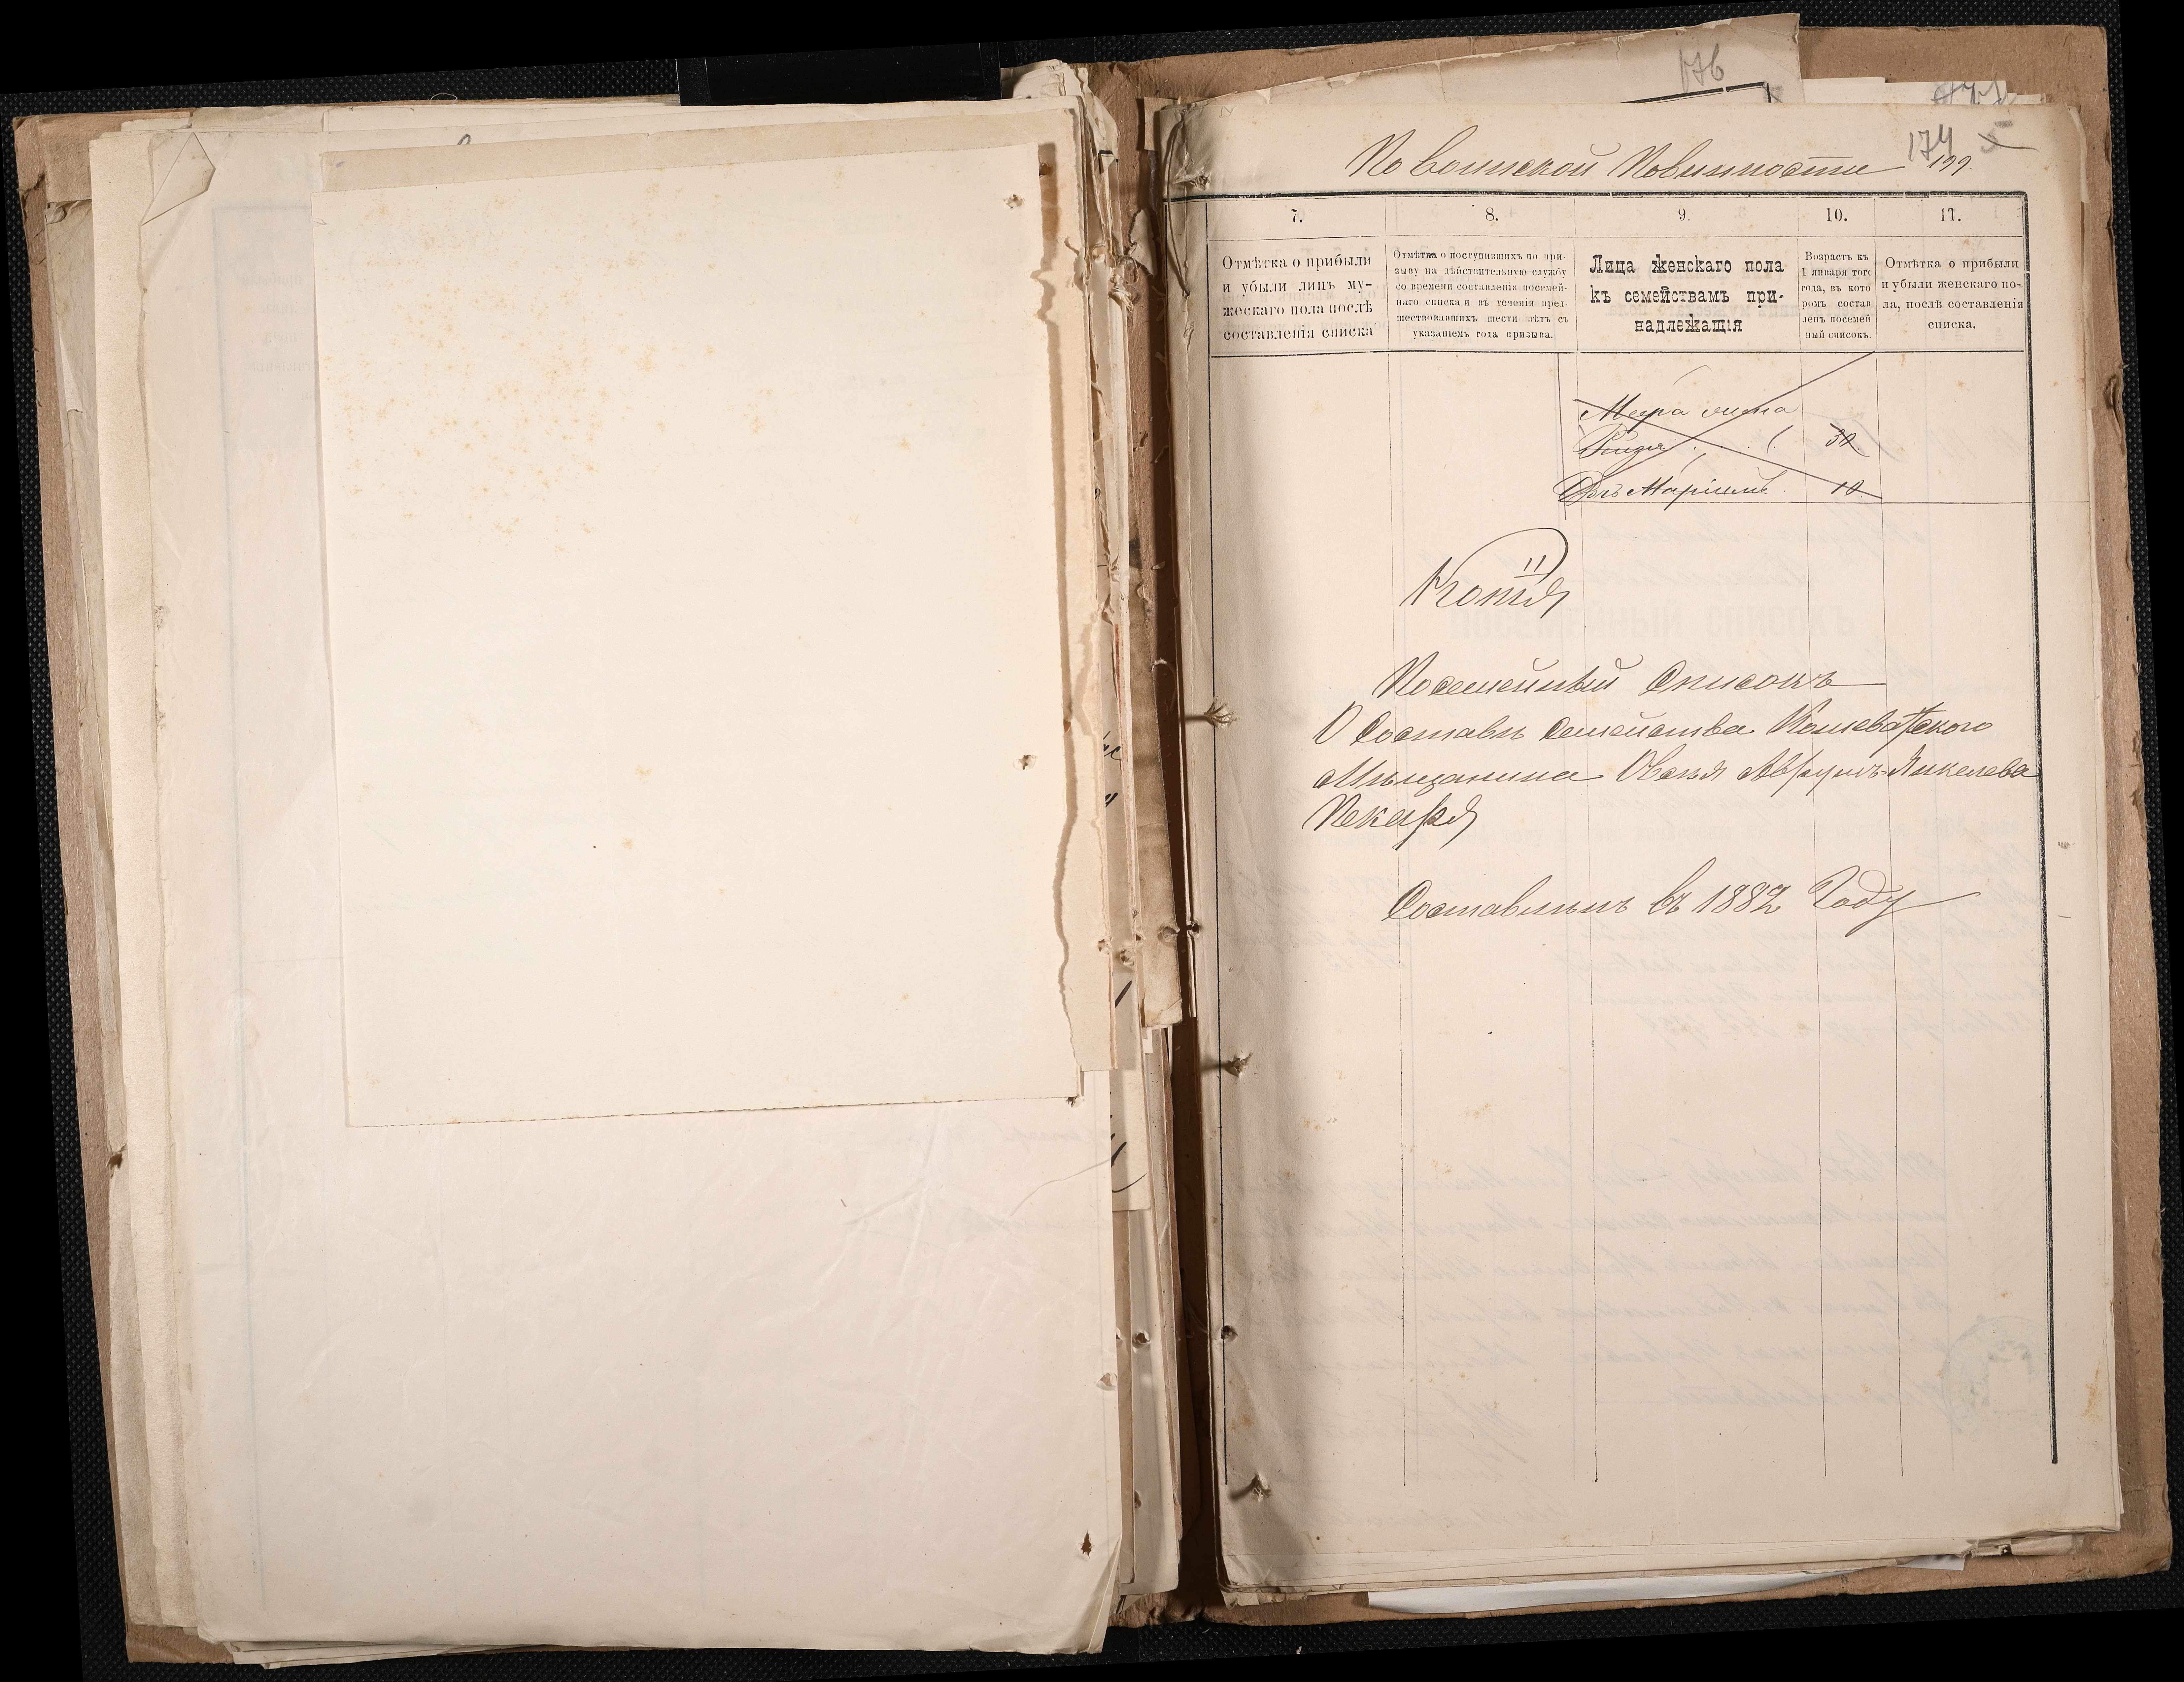 176
174
199.
По воинской Повинности
7.
8.
9.
10.
11.
Отмѣтка о прибыли
и убыли лицъ му-
жескаго пола послѣ
составленія списка
Отмѣтка о поступившихъ по при-
зыву на дѣйствительную службу
со времени составленія посемей-
наго списка и въ теченіи пред-
шествовавшихъ шести лѣтъ съ
указаніемъ года призыва.
Лица женскаго пола
къ семействамъ при-
надлежащія
Возрастъ къ
1 января того
года, въ кото
ромъ состав
ленъ посемей
ный списокъ.
Отмѣтка о прибыли
и убыли женскаго по-
ла, послѣ составленія
списка.
30
Маріямъ 10
Копія
Посемейный Списокъ
О Составѣ Семейства Кошеватского
Мѣщанина Овсѣя Аврумъ-Янкелева
Пекаря
Составленъ въ 1882 Году